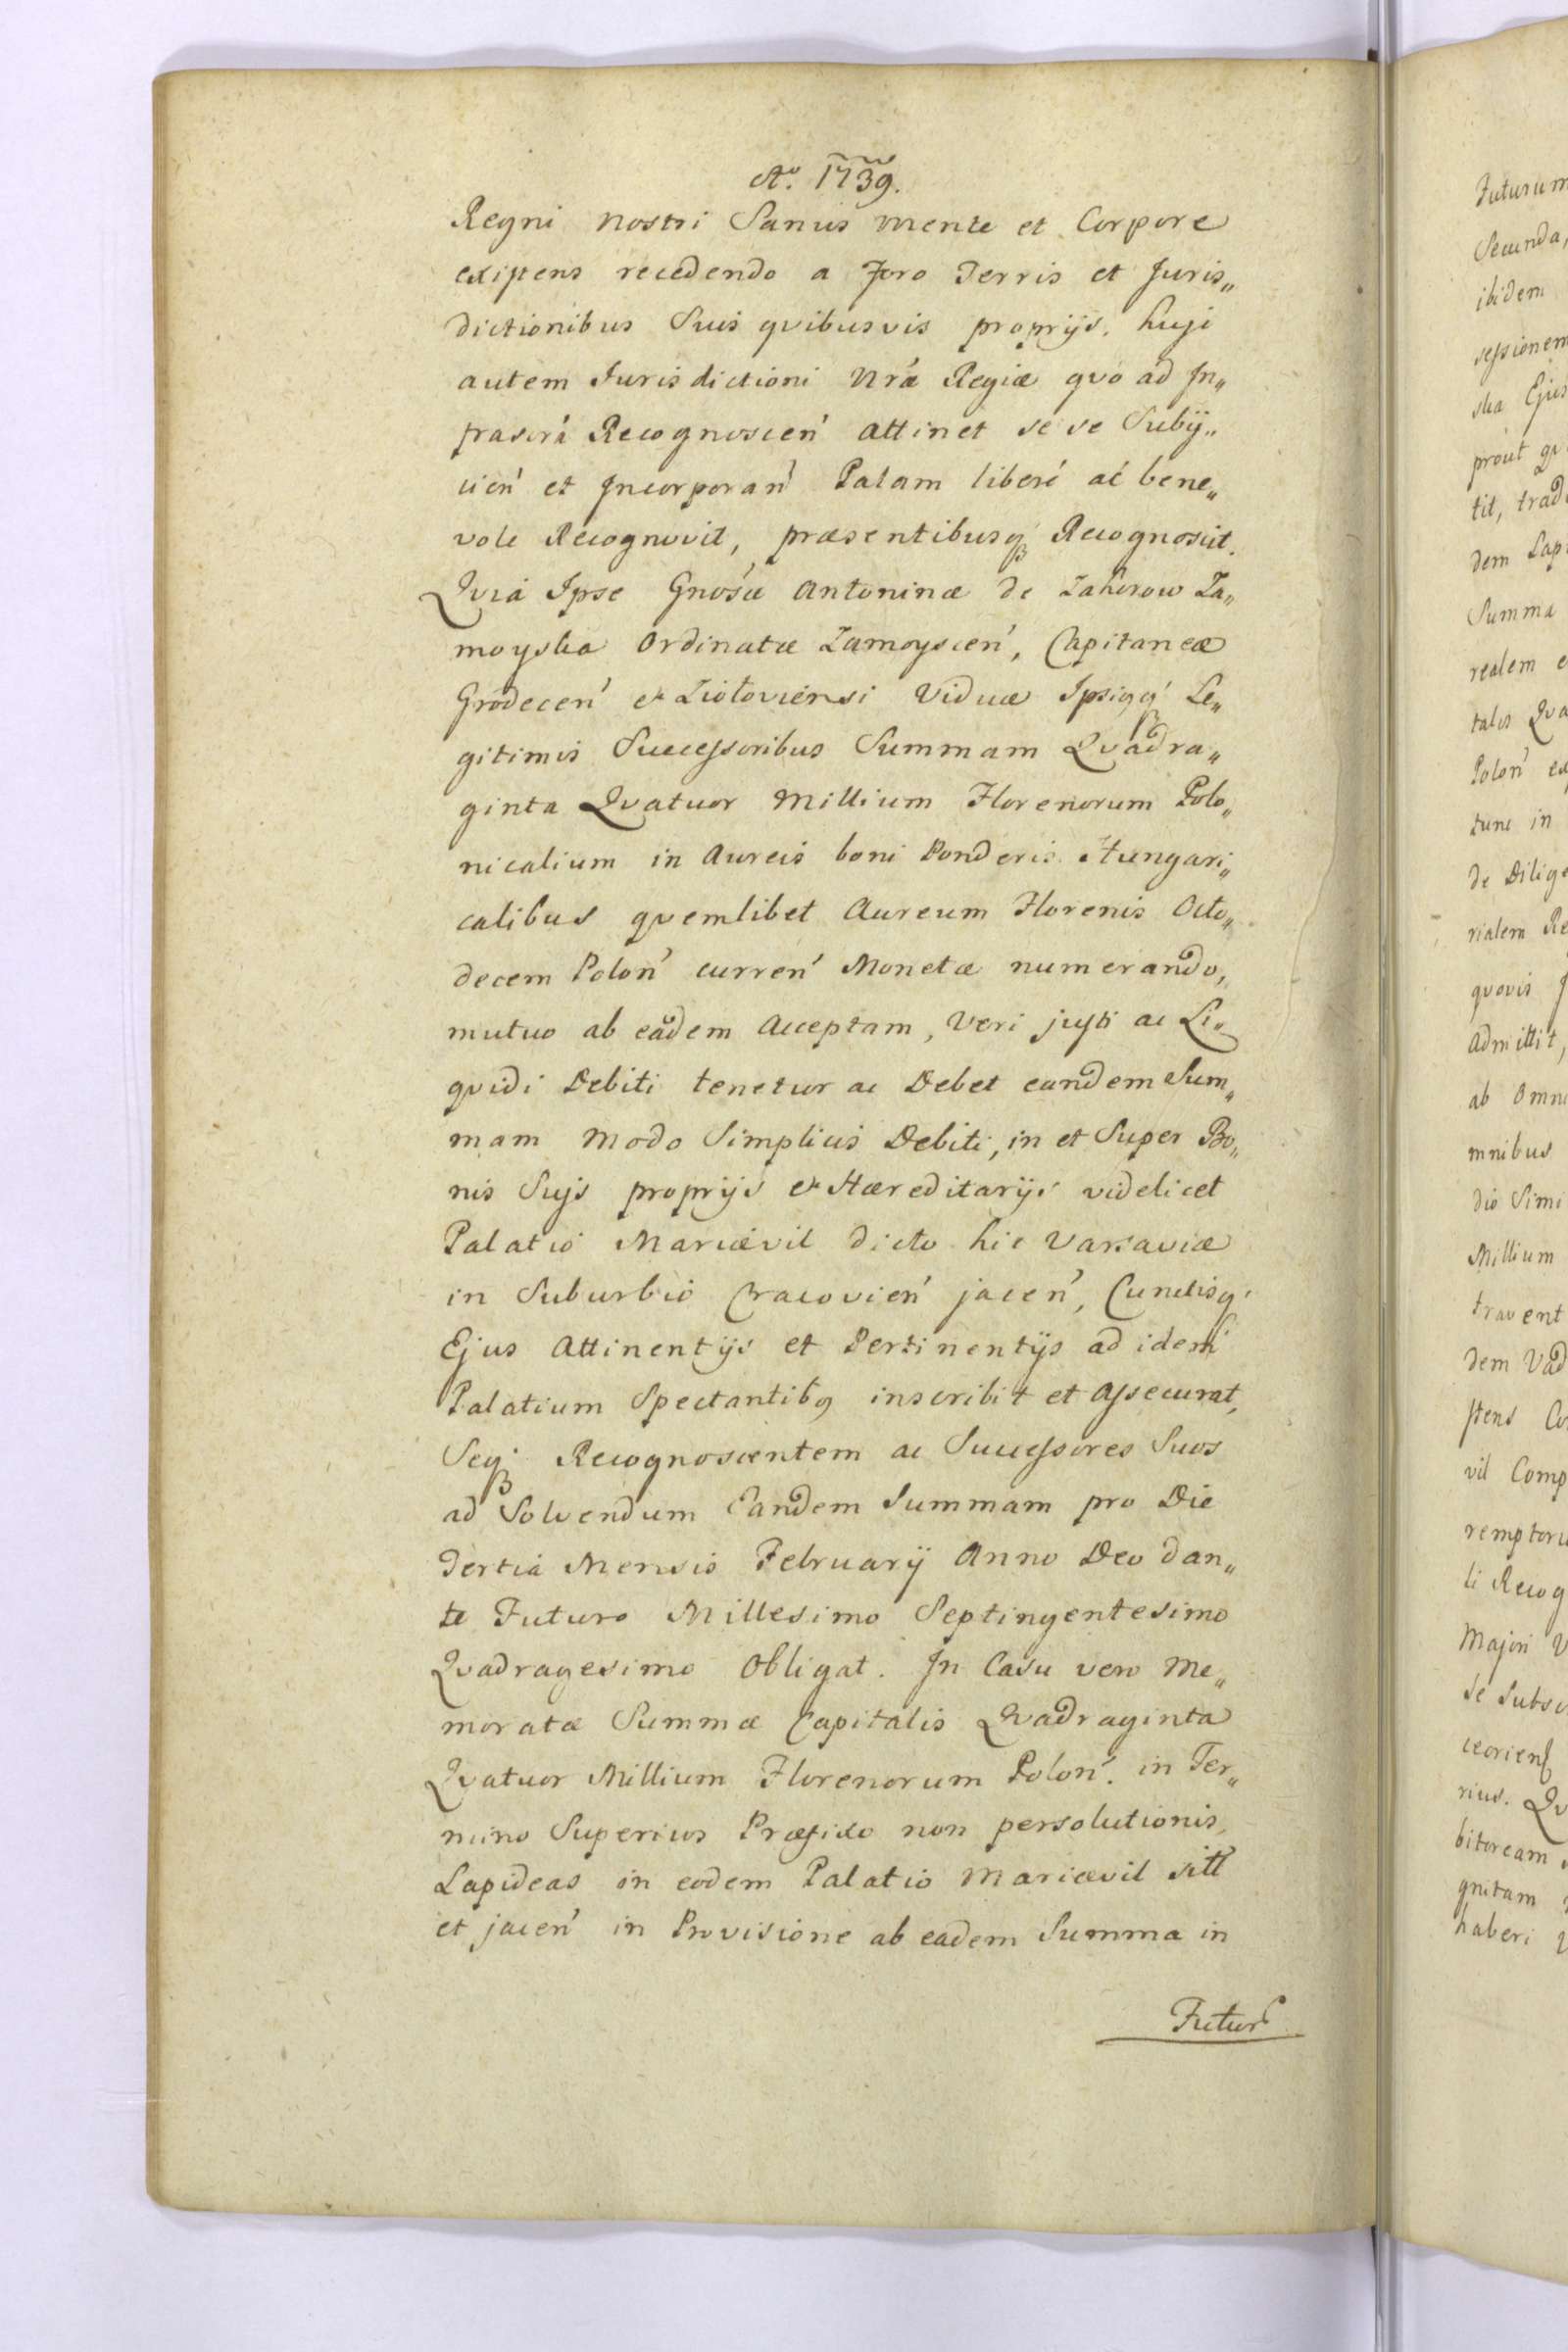 Aº. 1739.
Regni nostri Sanus mente et Corpore
existens recedendo a Foro Terris et Juris„
dictionibus Suis qvibusvis proprijs. huji
autem Jurisdictioni Nrá Regiæ qvo ad In„
frascrá Recognoscen̄ attinet se se Subij„
cień et Incorporań Palam liberé ac bene„
vole Recognovit, præsentibusq́ Recognoscit.
Qvia Ipse Gnosæ Antoninæ de Zahorow Za„
moyska Ordinatæ Zamoyscień, Capitaneæ
Grodeceń et Ziotoviensi Viduæ Ipsiqq́ Le„
gitimis Successoribus Summam Qvadra„
ginta Qvatuor Millium Florenorum Polo„
nicalium in Aureis boni Ponderis Hungari„
calibus qvemlibet Aureum Florenis Octo„
decem Poloń curreń Monetæ numerando,
mutuo ab eâdem Acceptam, Veri justi ac Li„
qvidi Debiti tenetur ac Debet eandem Sum„
mam Modo Simplicis Debiti, in et Super Bo„
nis Suis proprijs et Hæreditarijs videlicet
Palatio Mariævil dicto hic Varsaviæ
in Suburbio Cracovień jaceń, Cunctisq́
Ejus Attinentijs et Pertinentijs ad idem
Palatium Spectantibq inscribit et Assecurat,
Seq́ Recognoscentem ac Successores Suos
ad Solvendum Eandem Summam pro Die
Tertiâ Mensis Februarij Anno Deo dan„
te Futuro Millesimo Septingentesimo
Qvadragesimo Obligat. In Casu vero Me„
moratæ Summæ Capitalis Qvadraginta
Qvatuor Millium Florenorum Poloń. in Ter„
mino Superius Præfixo non persolutionis,
Lapideas in eodem Palatio Mariævil sitt
et jaceń in Provisione ab eadem Summa in
Futur
Futurum
Secunda,
ibidem
sessionem
ska Ejus
prout qv
tit, trad
dem Lapi
Summa
realem e
talis Qva
Poloń ex
tunc in
de Dilige
rialem Re
qvovis J
Admittit,
ab Omni
mnibus
dio Simi
Millium
travent
dem Vad
stens Co
vil Comp
remptori
li Recog
Majori V
se Subsc
rius. Qv
bitoream
gnitam
haberi V